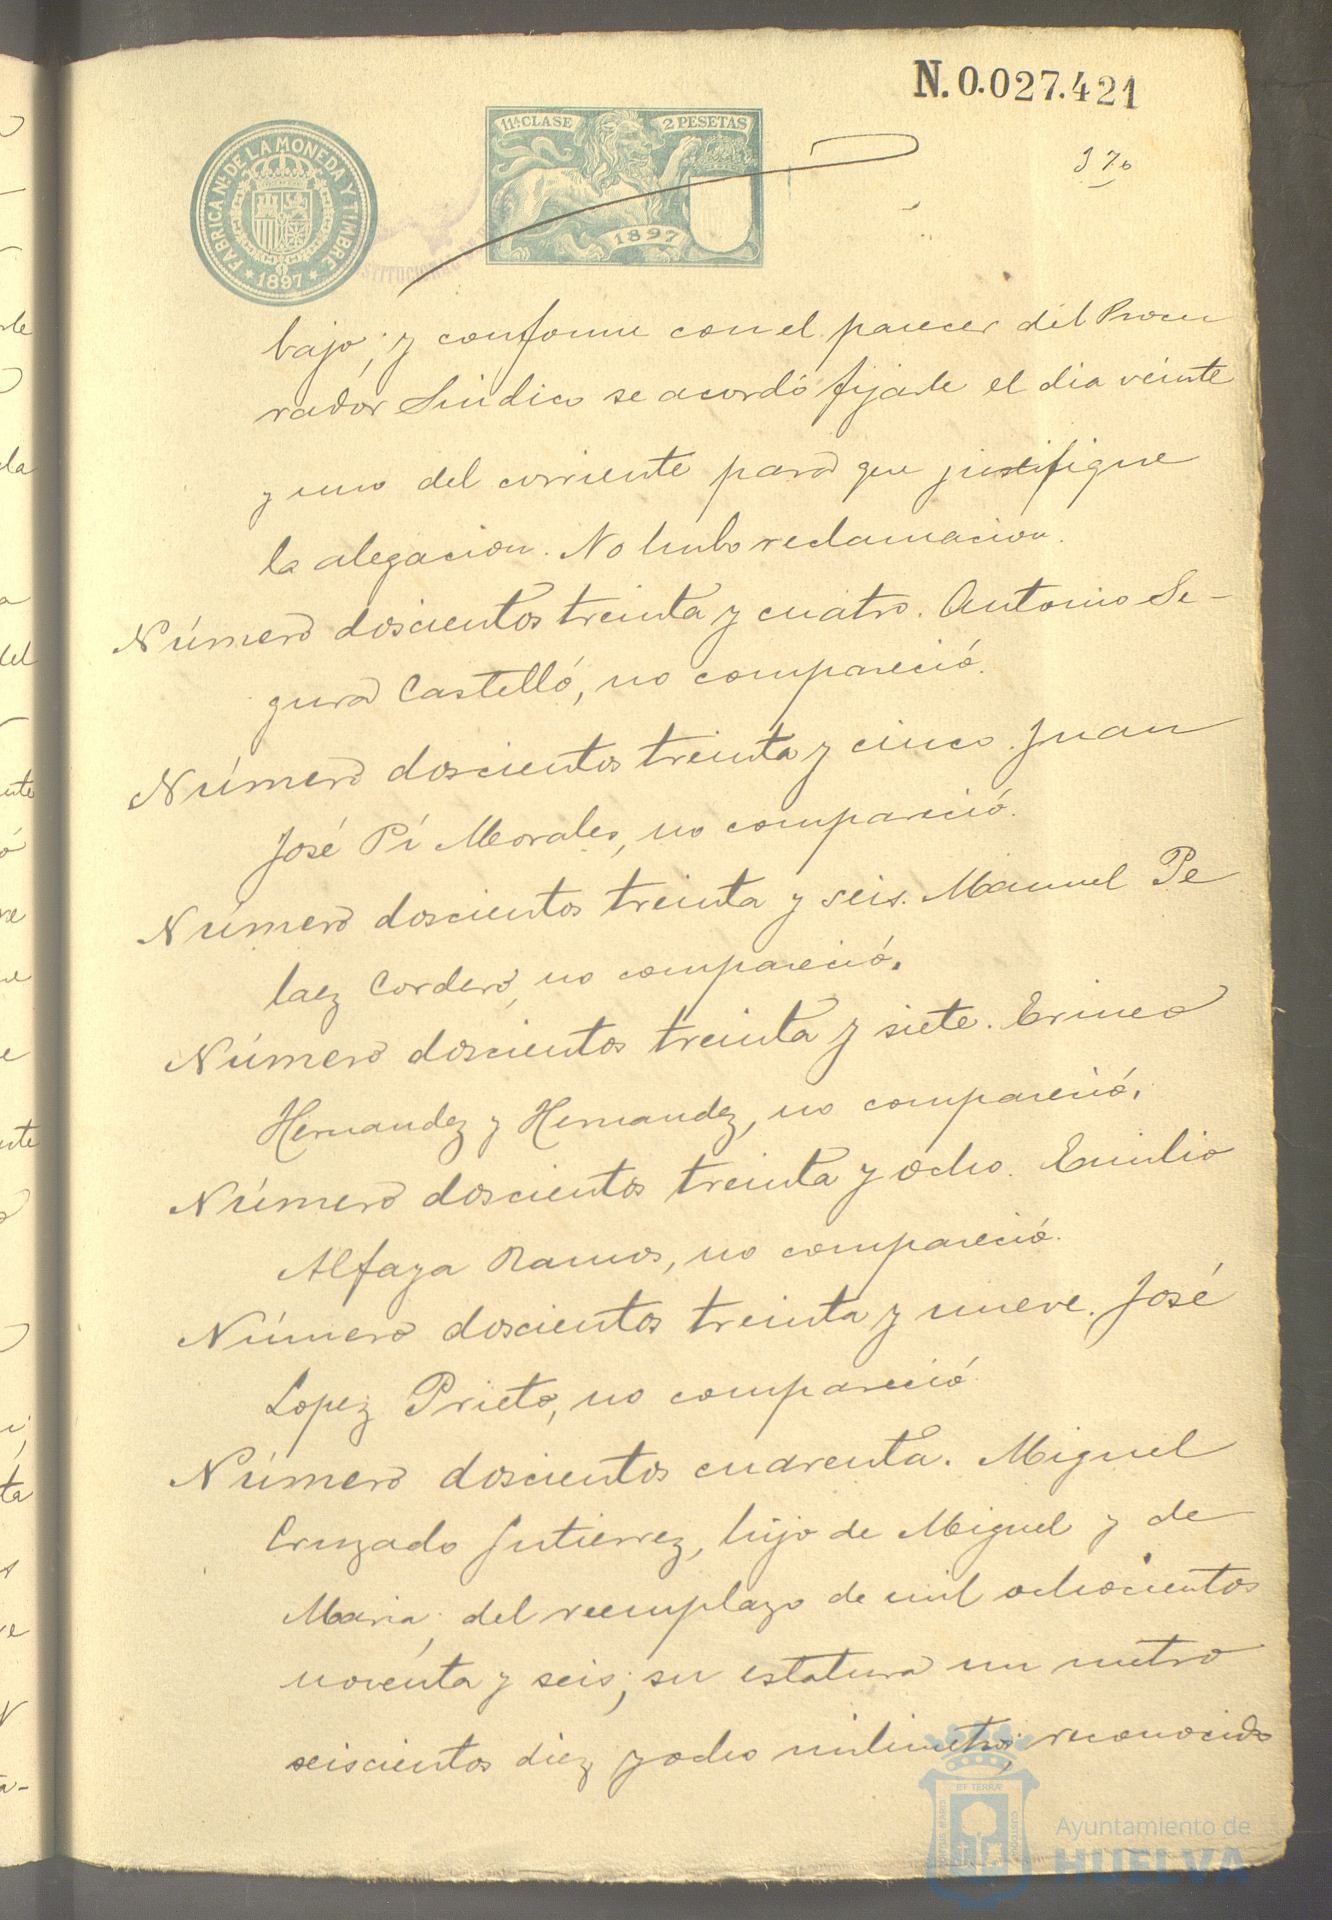 N. 0.027.421
11ª CLASE 2 PESETAS
FABRICA Nª DE LA MONEDA Y TIMBRE
* 1897 *
1897
bajo; y conforme con el parecer del Procu
rador Sindico se acordó fijarle el dia veinte
y uno del corriente para que justifique
la alegacion. No hubo reclamacion.
Número doscientos treinta y cuatro. Antonio Se-
gura Castelló, no compareció.
Número doscientos treinta y cinco. Juan
José Pí Morales, no compareció.
Número doscientos treinta y seis. Manuel Pe
laez Cordero, no compareció.
Número doscientos treinta y siete. Erineo
Hernandez y Hernandez, no compareció.
Número doscientos treinta y ocho. Emilio
Alfaya Ramos, no compareció.
Número doscientos treinta y nueve. José
Lopez Prieto, no compareció
Número doscientos cuarenta. Miguel
Cruzado Gutierrez, hijo de Miguel y de
Maria, del reemplazo de mil ochocientos
noventa y seis; su estatura un metro
seiscientos diez y ocho milimetros; reconocido
Ayuntamiento de
HUELVA